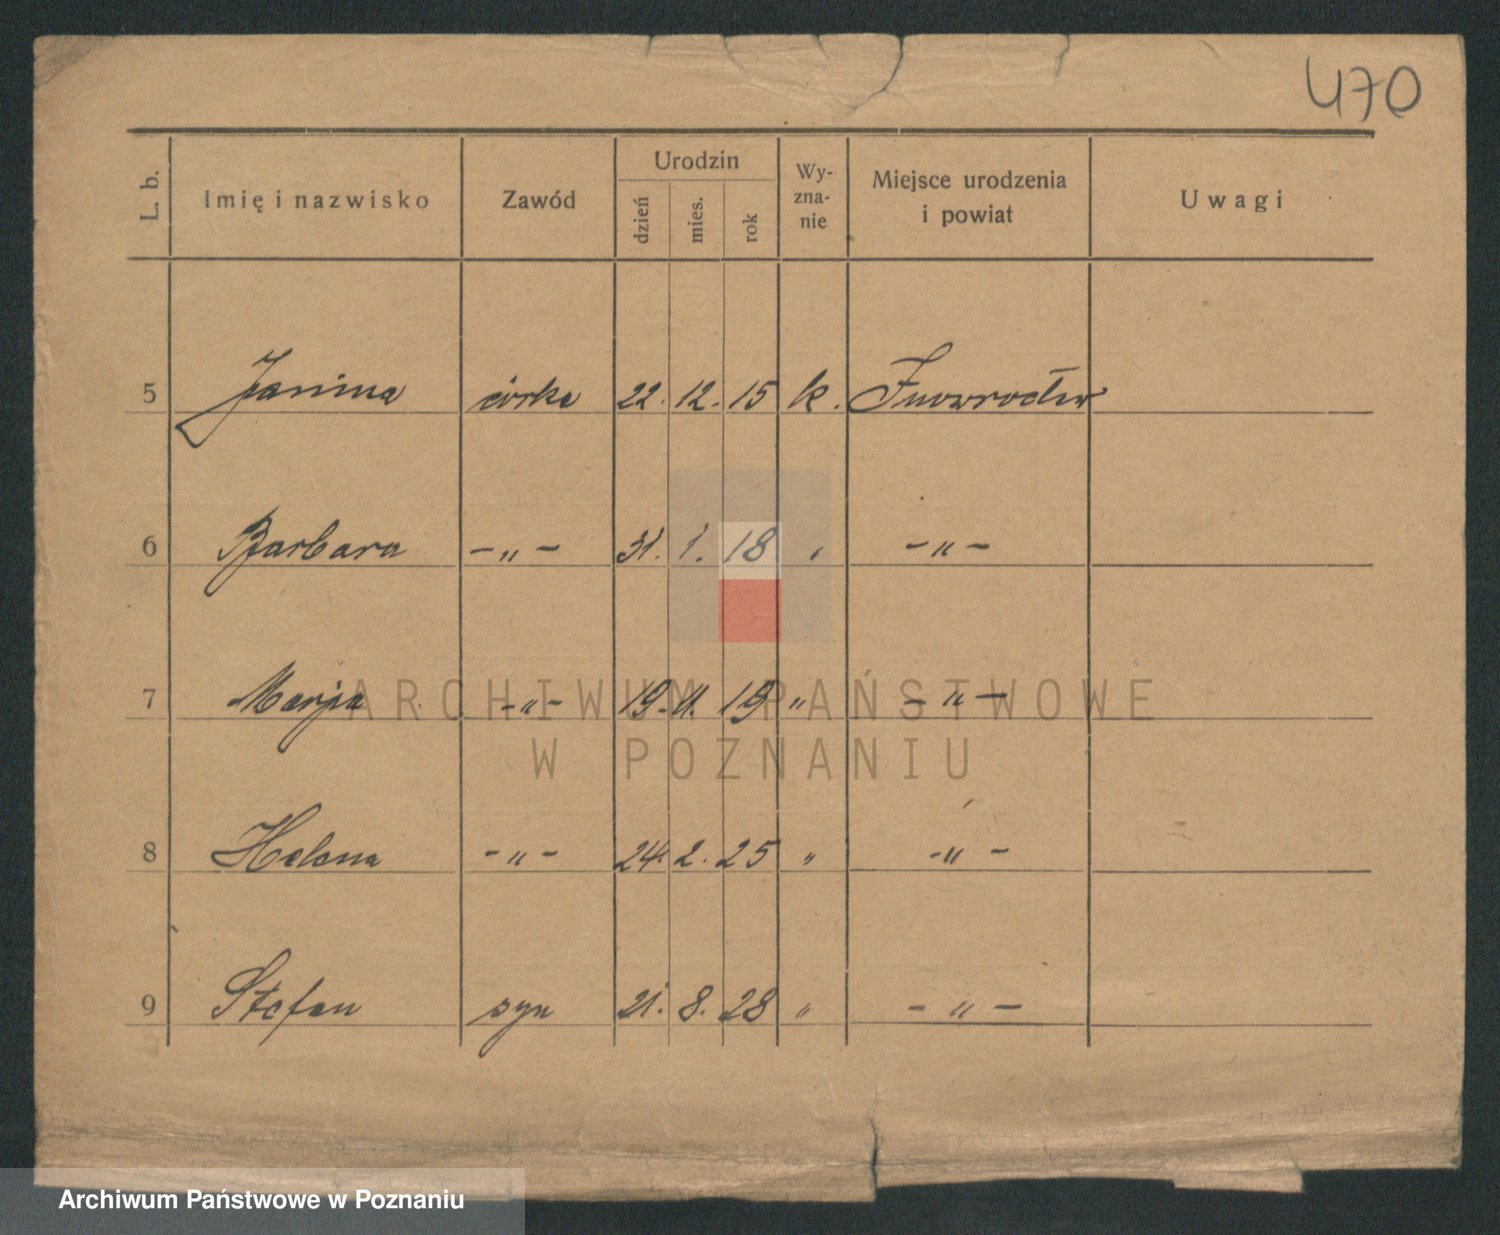 470
L. b. Imię i nazwisko Zawód Urodzin dzień mies. rok Wy-zna-nie Miejsce urodzenia i powiat Uwagi
5 Janina córka 22. 12. 15 k. Inowrocław
6 Barbara -„- 31. 1. 18 „ -„-
7 Marja -„- 19. 11. 19 „ -„-
8 Helena -„- 24. 2. 25 „ -„-
9 Stefan syn 21. 8. 28 „ -„-
ARCHIWUM PAŃSTWOWE
W POZNANIU
Archiwum Państwowe w Poznaniu